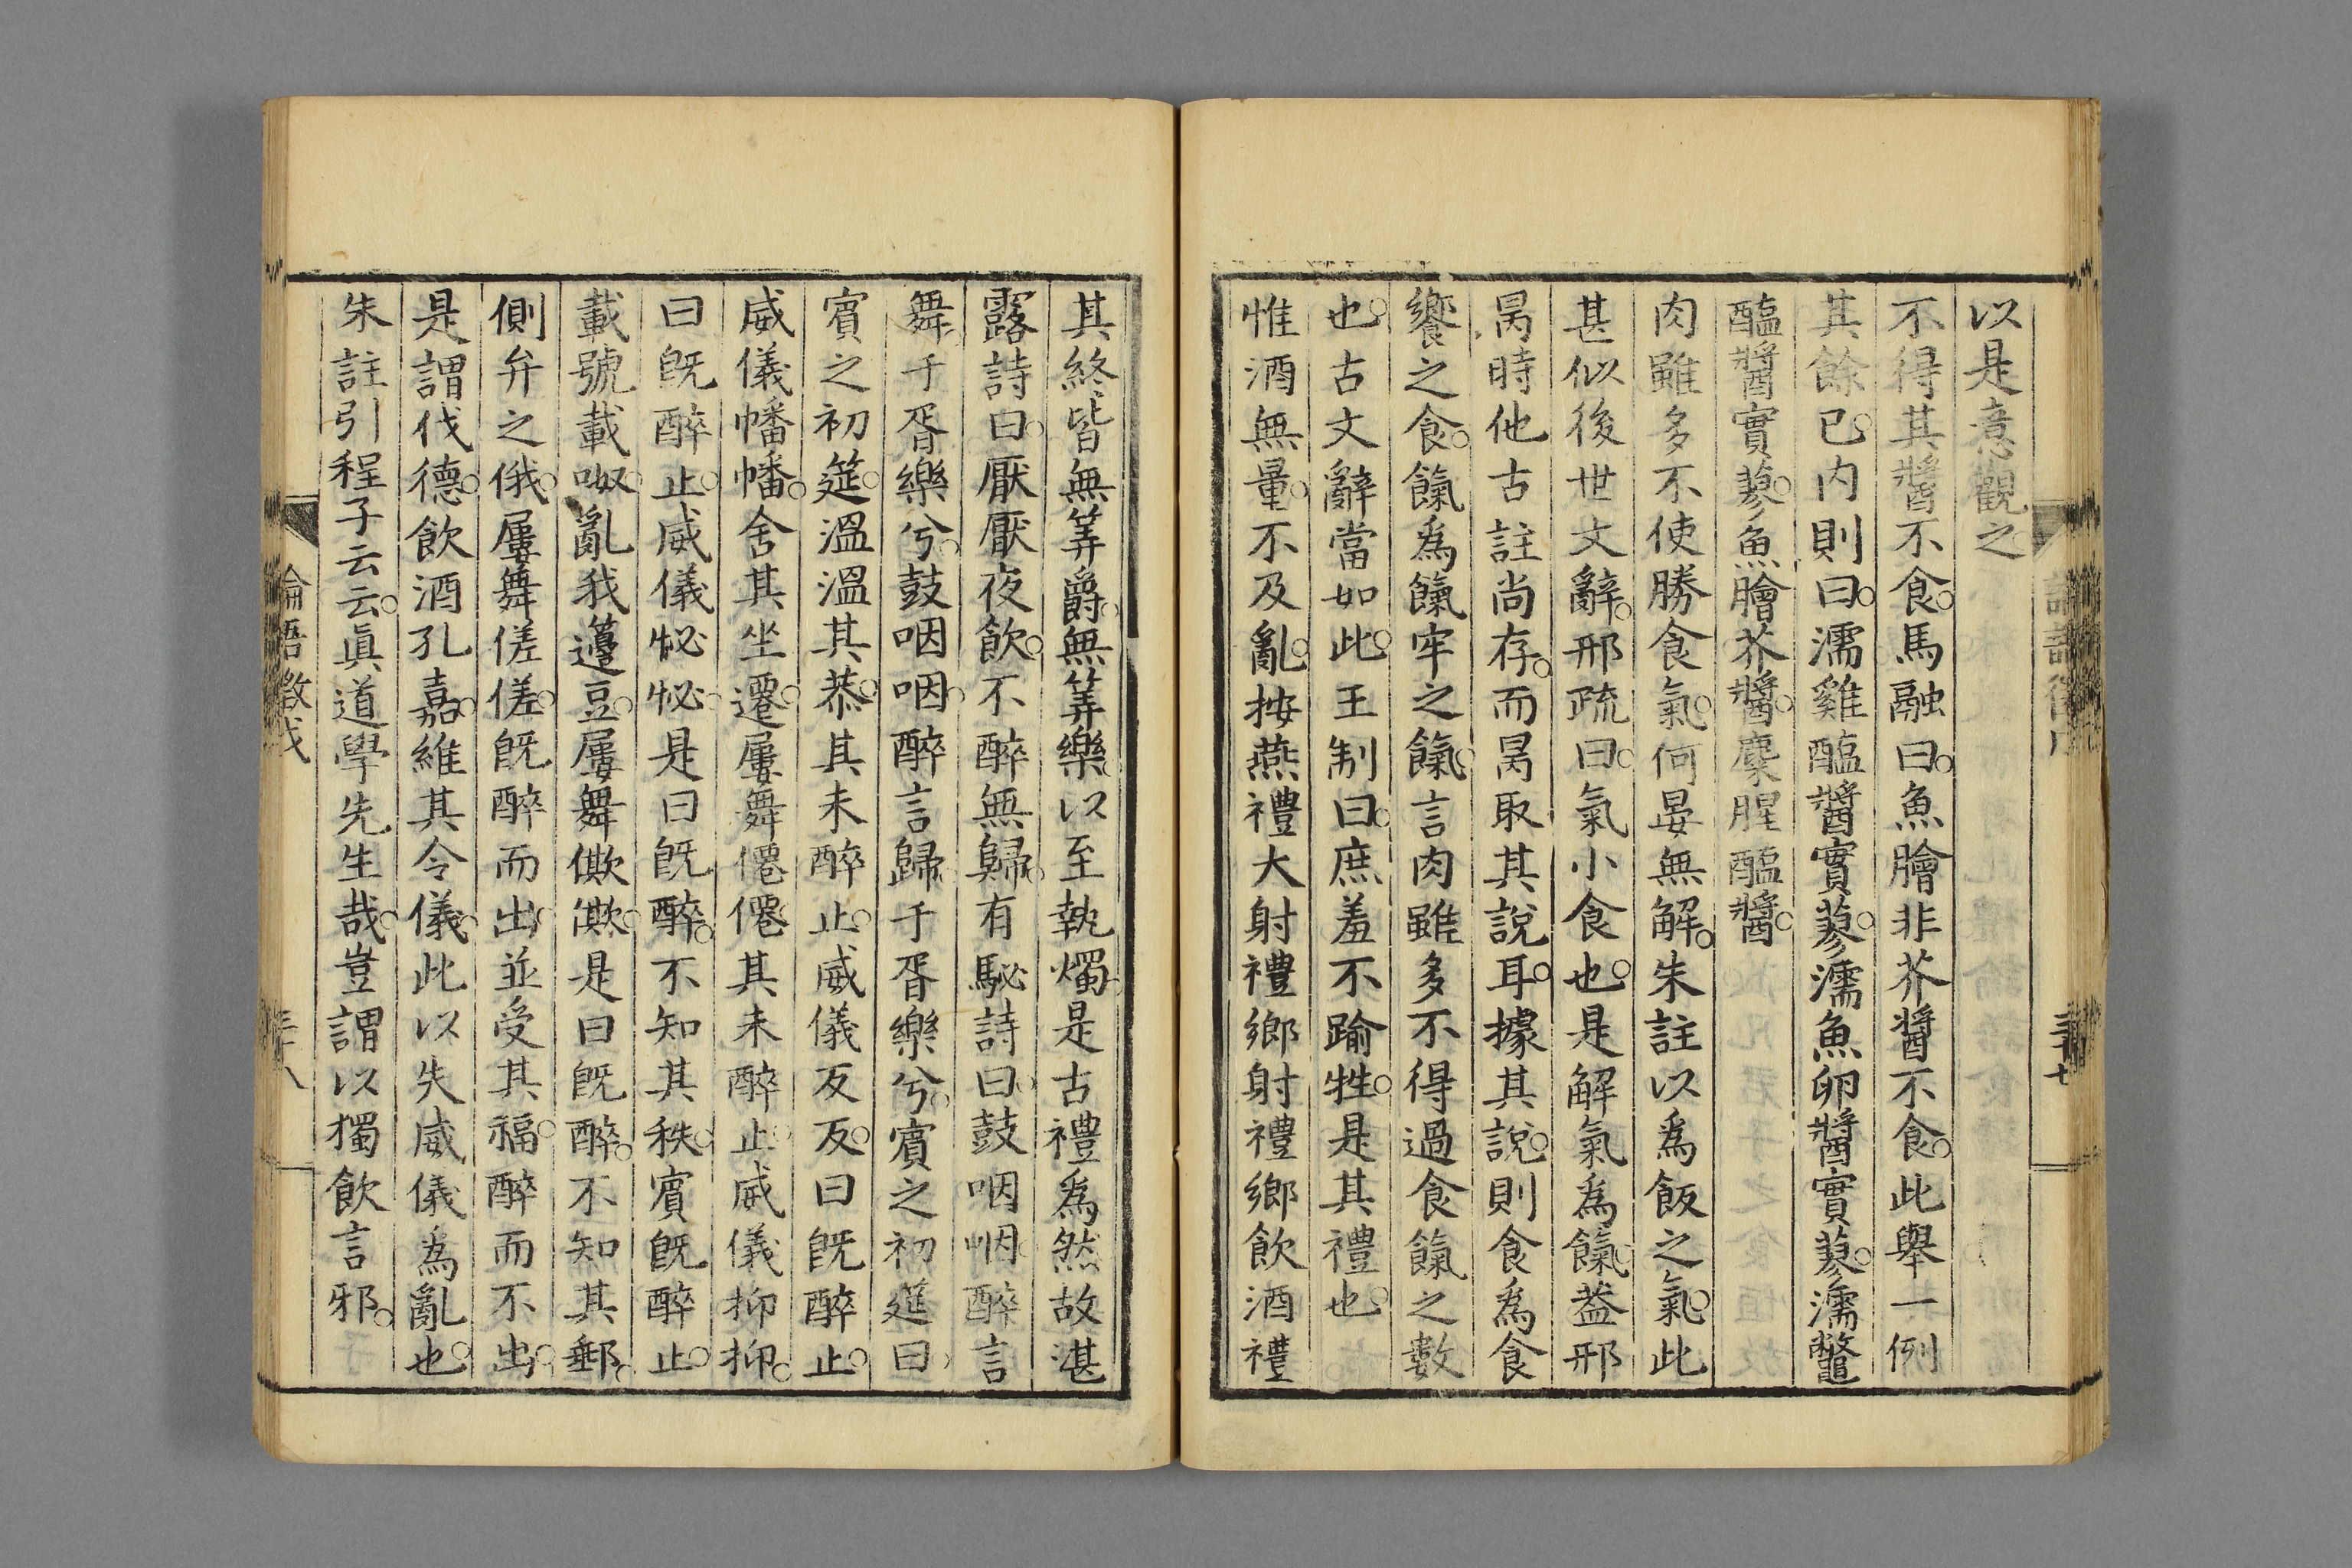 以是意觀之
不得其醬不食馬融曰魚膾非芥醬不食此舉一例
其餘已内則曰濡雞醢醬實蓼濡魚卵醬實蓼濡鼈
醢醬實蓼魚膾芥醬麋腥醢醬
肉雖多不使勝食氣何晏無解朱註以爲飯之氣此
甚似後世文辭邢疏曰氣小食也是解氣爲餼蓋邢
昺時他古註尚存而昺取其說耳據其說則食爲食
饗之食餼爲餼牢之餼言肉雖多不得過食餼之數
也古文辭當如此王制曰庶羞不踰牲是其禮也
惟酒無量不及亂按燕禮大射禮鄉射禮鄉飲酒禮
三十七
其終皆無筭爵無筭樂以至執燭是古禮爲然故湛
露詩曰厭厭夜飲不醉無歸有駜詩曰鼓咽咽醉言
舞于胥樂兮鼓咽咽醉言歸于胥樂兮賓之初筵曰
賓之初筵溫溫其恭其未醉止威儀反反曰既醉止
威儀幡幡舍其坐遷屢舞僊僊其未醉止威儀抑抑
曰既醉止威儀怭怭是曰既醉不知其秩賓既醉止
載號載呶亂我籩豆屢舞僛僛是曰既醉不知其郵
側弁之俄屢舞傞傞既醉而出並受其福醉而不出
是謂伐德飲酒孔嘉維其令儀此以失威儀爲亂也
朱註引程子云云眞道學先生哉豈謂以獨飲言邪
論語徵戊
三十八